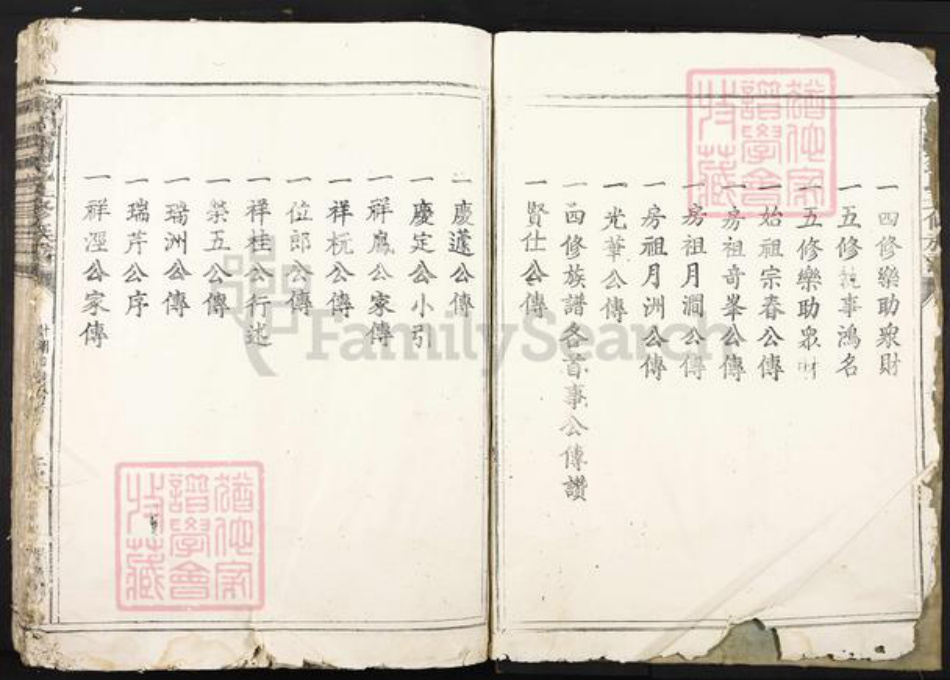 一四修樂助衆財
一五修執事鴻名
一五修樂助衆財
一始祖宗春公傳
一房祖奇峯公傳
一房祖月澗公傳
一房祖月洲公傳
一光華公傳
一四修族譜各首事公傳讚
一賢仕公傳
一慶蘧公傳
一慶定公小引
一祥鳳公家傳
一祥杬公傳
一位郎公傳
一祥桂公行述
一榮五公傳
一瑞洲公傳
一瑞芹公序
一祥溼公家傳
猶他家譜學會收藏
猶他家譜學會收藏
FamilySearch